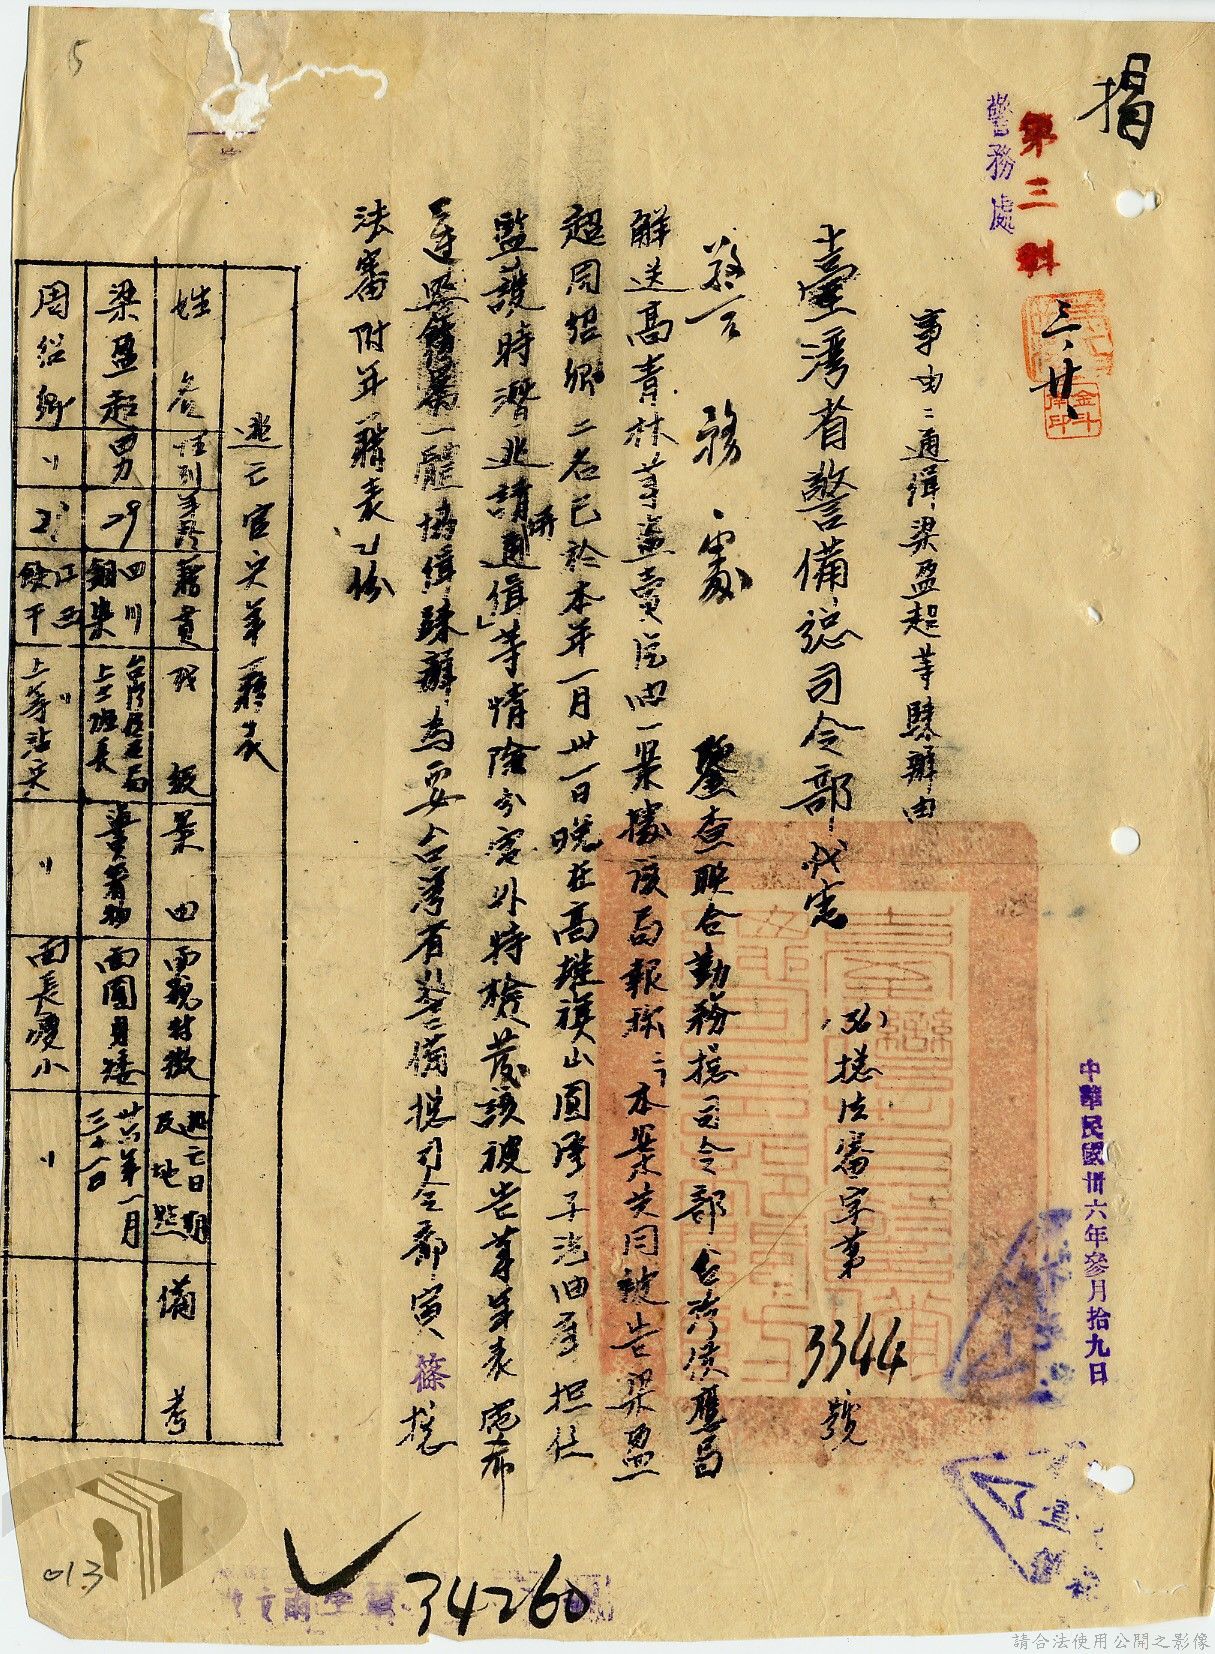 揭
第三科
警務處
三、廿、
中華民國卅六年參月拾九日
事由：通緝梁盈超等歸辦由
臺灣省警備總司令部代電
(36)總法審字第3344號
警務處
鑒查聯合勤務總司令部台灣供應局
解送高青林等盜賣汽油一案據該局報称：「本案共同被告梁盈
超周紹卿二名已於本年一月卅一日晚在高雄旗山圓潭子汽油庫担任
監護時潛逃請通緝」等情除分電外特檢發該被告等年表電希
一體協緝歸辦為要台灣省警備總司令部寅篠總
法審附年籍表乙份
逃亡官兵年籍表
姓名
性別
年齡
籍貫
職級
案由
面貌特徵
逃亡日期及地點
備考
梁盈超
男
29
四川銅梁
台灣供應局上士班長
面圓身矮
卅六年一月三十一日
周紹卿
〃
江西餘干
〃上等站兵
〃
面長瘦小
〃
34260
013
5
請合法使用公開之影像